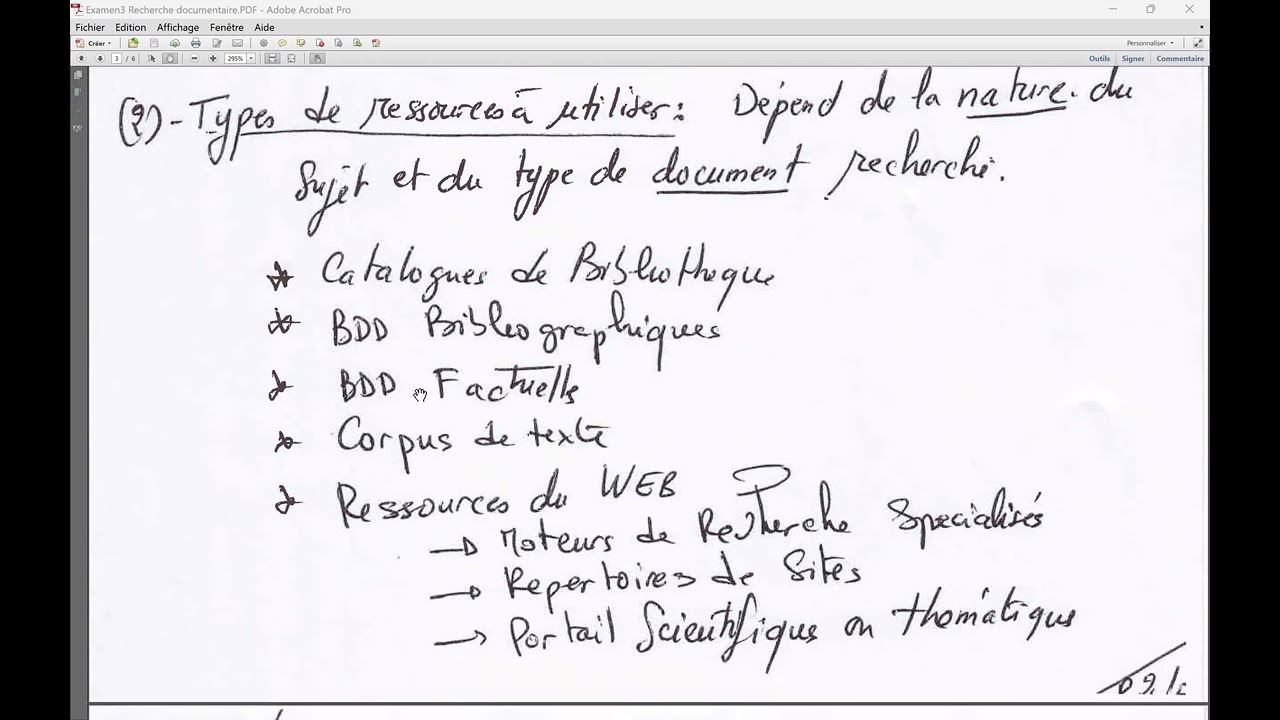 Examen3 Recherche documentaire.PDF - Adobe Acrobat Pro
Fichier Edition Affichage Fenêtre Aide
Créer Personnaliser
3 / 6 295% Outils Signer Commentaire
(2) - Types de ressources à utiliser : Dépend de la nature du
Sujet et du type de document recherché.
Catalogues de Bibliotheque
BDD Bibliographiques
BDD Factuelle
Corpus de texte
Ressources du WEB
→ Moteurs de Recherche Specialisés
→ Repertoires de Sites
→ Portail Scientifique ou thématique